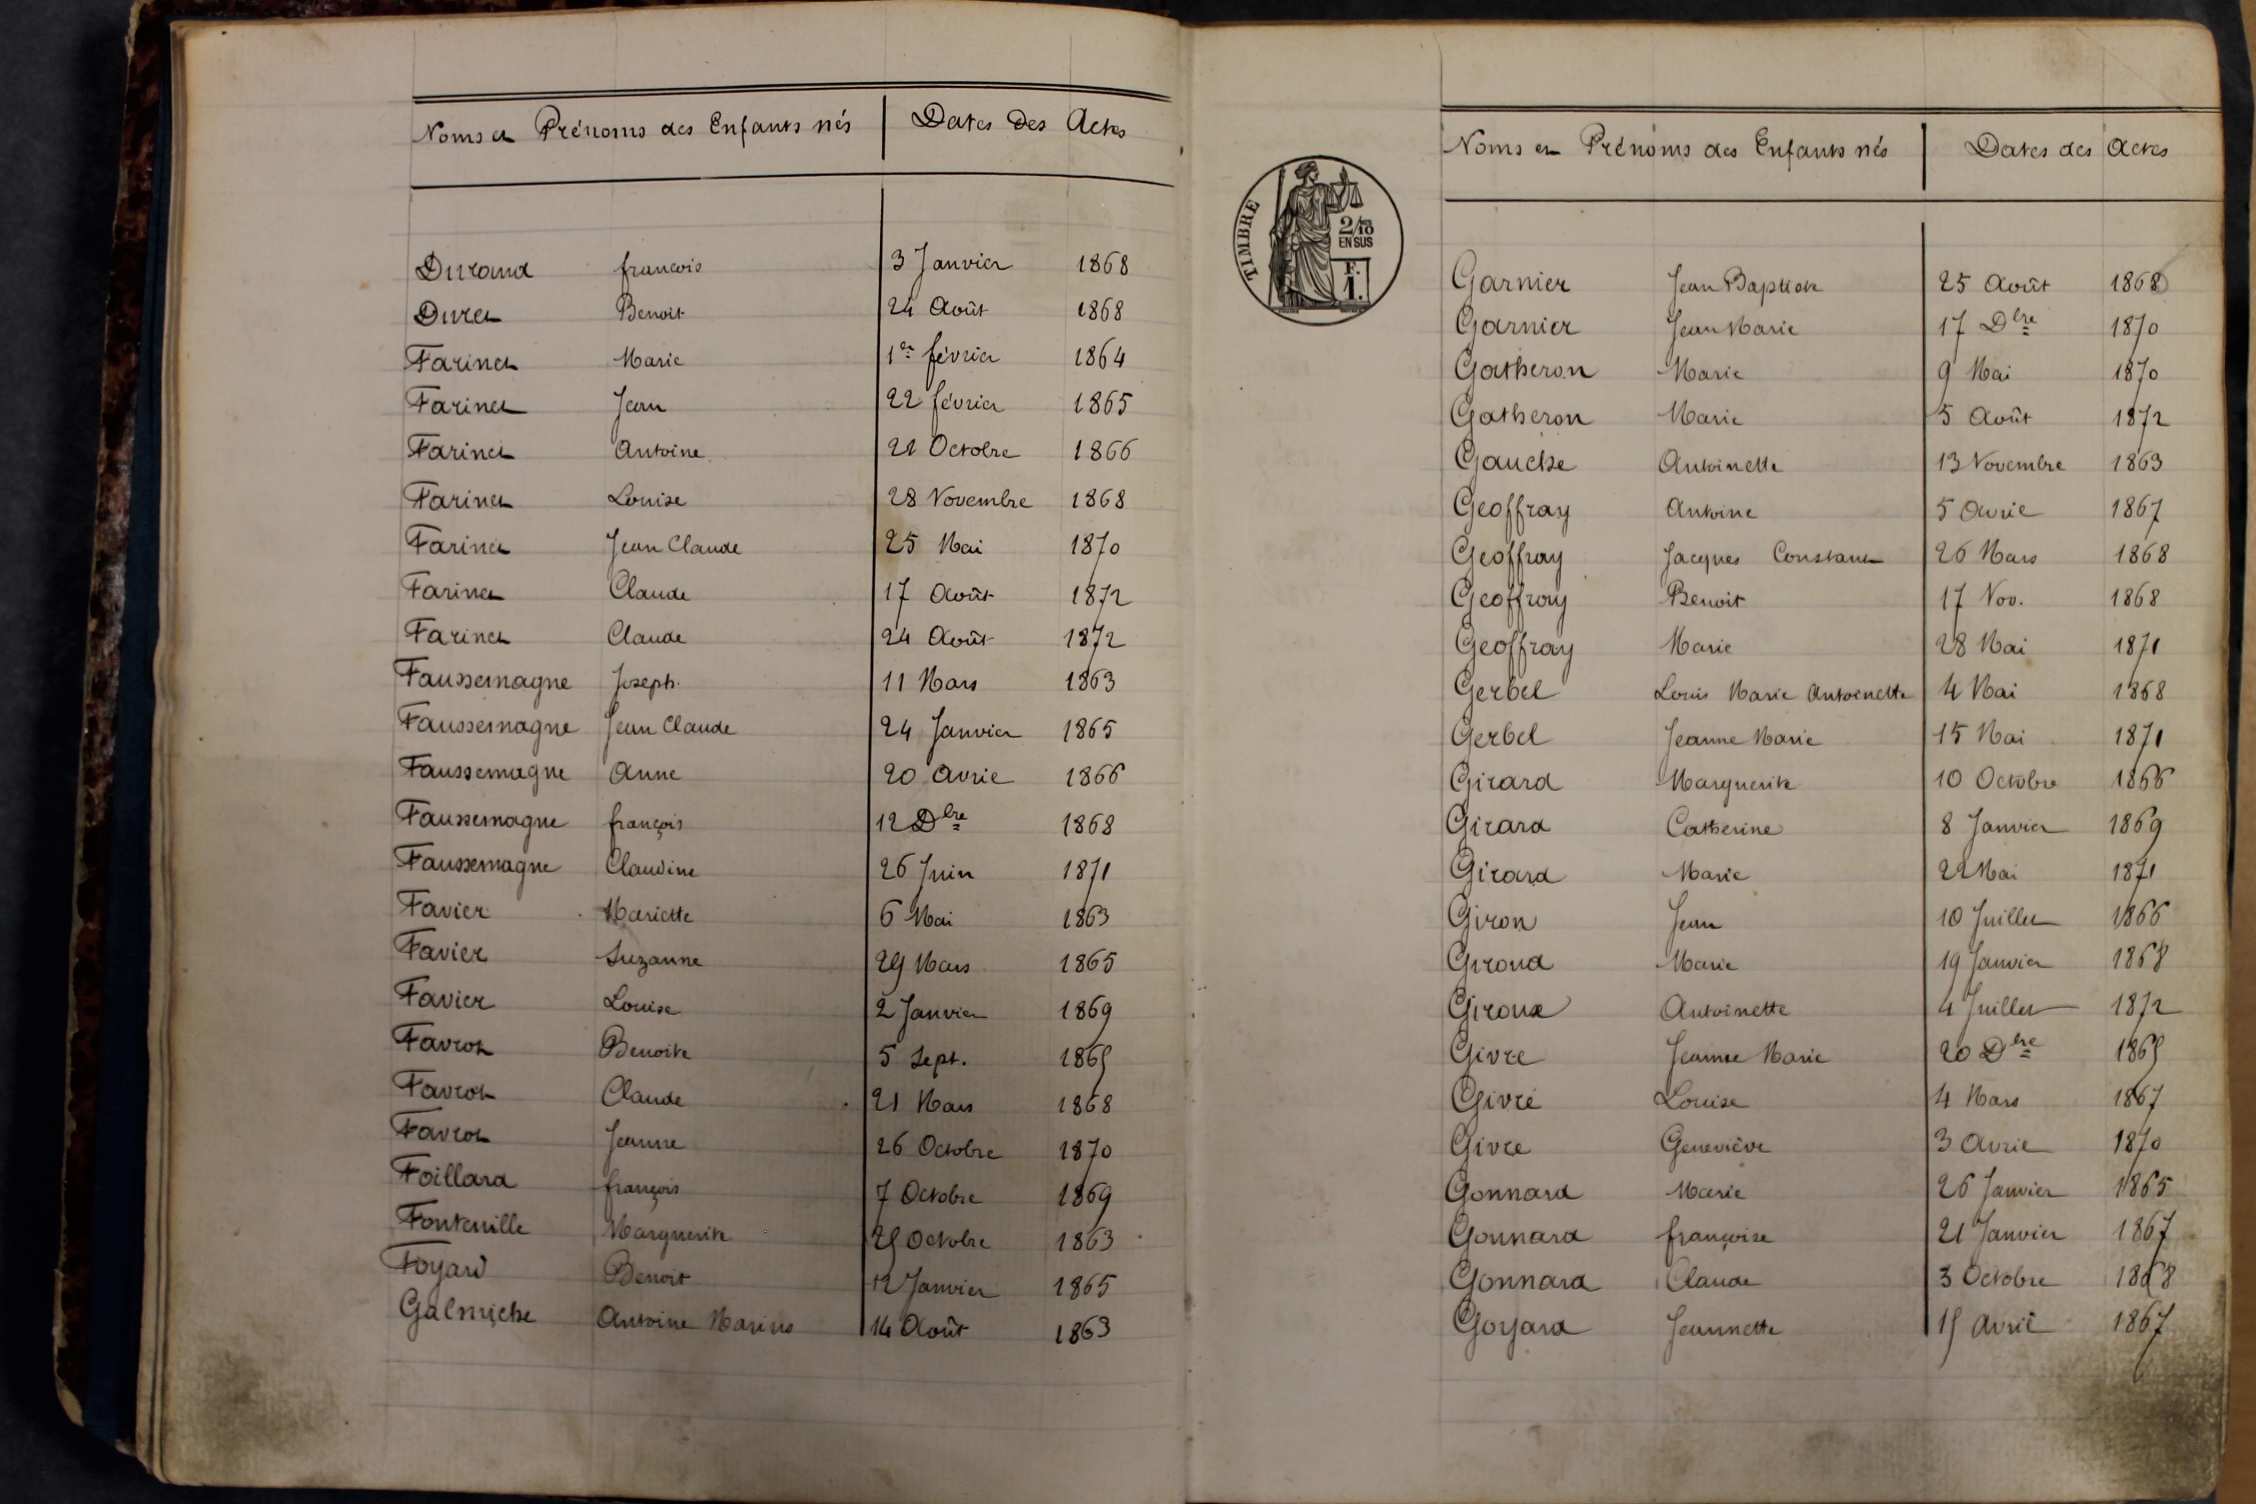 Noms et Prénoms des Enfants nés Dates des Actes
Durand françois 3 Janvier 1868
Duret Benoit 24 Août 1868
Farinet Marie 1er février 1864
Farinet Jean 22 février 1865
Farinet Antoine 21 Octobre 1866
Farinet Louise 28 Novembre 1868
Farinet Jean Claude 25 Mai 1870
Farinet Claude 17 Août 1872
Farinet Claude 24 Août 1872
Faussemagne Joseph 11 Mars 1863
Faussemagne Jean Claude 24 Janvier 1865
Faussemagne Anne 20 Avril 1866
Faussemagne françois 12 Dbre 1868
Faussemagne Claudine 26 Juin 1871
Favier Mariette 6 Mai 1863
Favier Suzanne 29 Mars 1865
Favier Louise 2 Janvier 1869
Favrot Benoite 5 Sept. 1865
Favrot Claude 21 Mars 1868
Favrot Jeanne 26 Octobre 1870
Foillard françois 7 Octobre 1869
Fontenille Marguerite 25 Octobre 1863
Foyard Benoit 12 Janvier 1865
Galmiche Antoine Marius 14 Août 1863
Noms et Prénoms des Enfants nés Dates des Actes
TIMBRE
2/10
EN SUS
F.
1.
Garnier Jean Baptiste 25 Août 1868
Garnier Jean Marie 17 Dbre 1870
Gatheron Marie 9 Mai 1870
Gatheron Marie 5 Août 1872
Gauche Antoinette 13 Novembre 1863
Geoffray Antoine 5 Avril 1867
Geoffray Jacques Constant 26 Mars 1868
Geoffray Benoit 17 Nov. 1868
Geoffray Marie 28 Mai 1871
Gerbel Louis Marie Antoinette 4 Mai 1868
Gerbel Jeanne Marie 15 Mai 1871
Girard Marguerite 10 Octobre 1866
Girard Catherine 8 Janvier 1869
Girard Marie 22 Mai 1871
Giron Jean 10 Juillet 1866
Giroud Marie 19 Janvier 1868
Giroux Antoinette 4 Juillet 1872
Givre Jeanne Marie 20 Dbre 1865
Givre Louise 4 Mars 1867
Givre Geneviève 3 Avril 1870
Gonnard Marie 26 Janvier 1865
Gonnard françoise 21 Janvier 1867
Gonnard Claude 3 Octobre 1868
Goyard Jeannette 15 Avril 1867